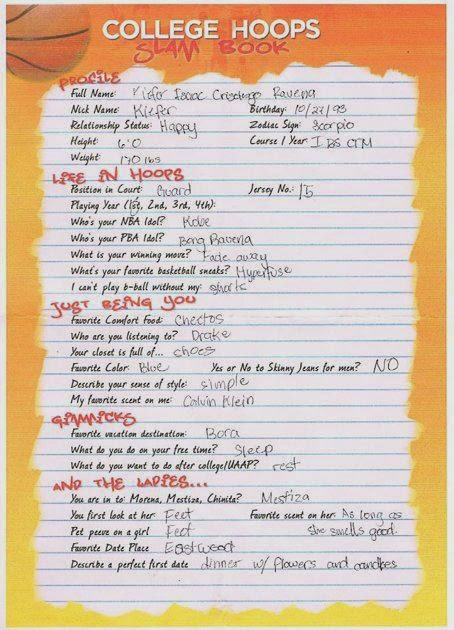 COLLEGE HOOPS
SLAM BOOK
PROFILE
Full Name: Kiefer Isaac Crisologo Ravena
Nick Name: Kiefer Birthday: 10/27/93
Relationship Status: Happy Zodiac Sign: Scorpio
Height: 6'0 Course / Year: I BS CTM
Weight: 170 lbs
LIFE IN HOOPS
Position in Court: Guard Jersey No.: 15
Playing Year (1st, 2nd, 3rd, 4th):
Who's your NBA Idol? Kobe
Who's your PBA Idol? Bong Ravena
What is your winning move? Fade away
What's your favorite basketball sneaks? Hyperfuse
I can't play b-ball without my: shorts
JUST BEING YOU
Favorite Comfort Food: Cheetos
Who are you listening to? Drake
Your closet is full of... shoes
Favorite Color: Blue Yes or No to Skinny Jeans for men? NO
Describe your sense of style: simple
My favorite scent on me: Calvin Klein
GIMMICKS
Favorite vacation destination: Bora
What do you do on your free time? sleep
What do you want to do after college/UAAP? rest
AND THE LADIES...
You are in to: Morena, Mestiza, Chinita? Mestiza
You first look at her: Feet Favorite scent on her: As long as
she smells good.
Pet peeve on a girl Feet
Favorite Date Place Eastwood
Describe a perfect first date dinner w/ flowers and candles